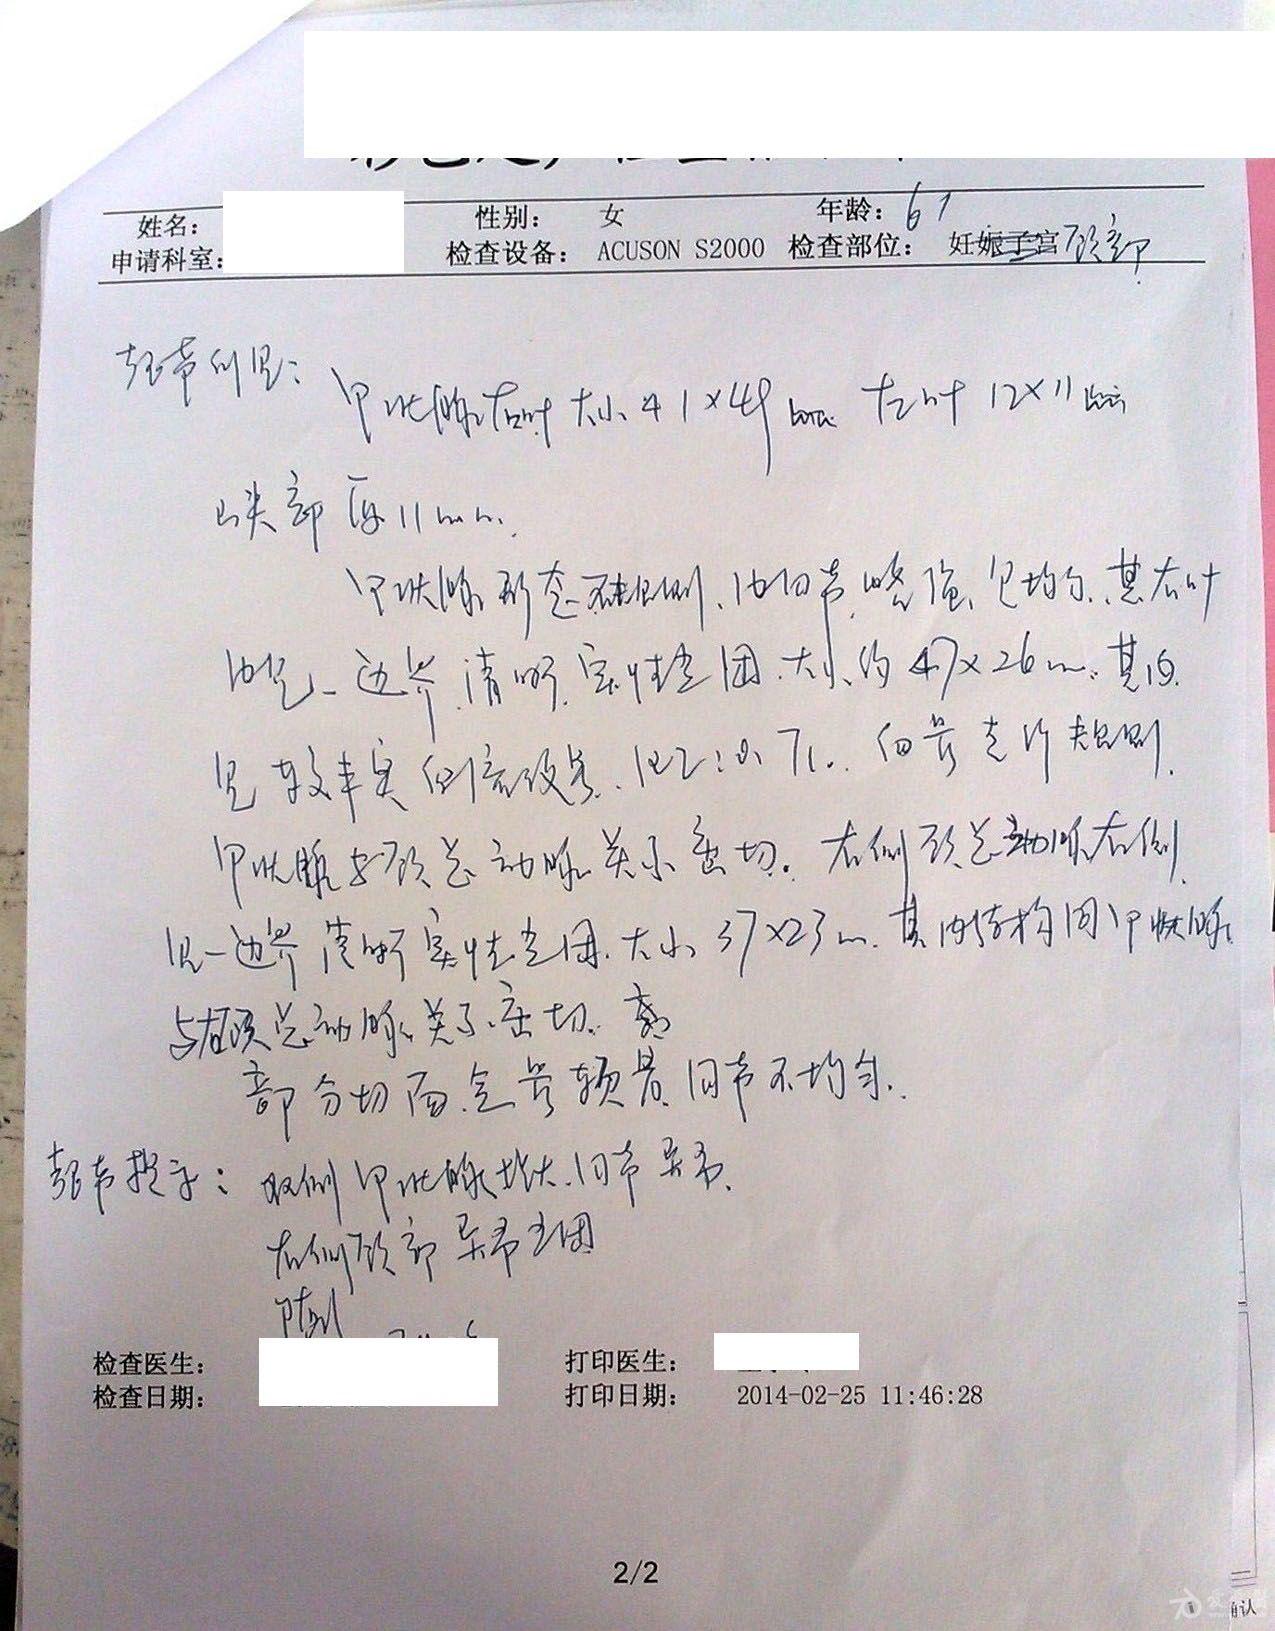 姓名： 性别： 女 年龄：61
申请科室： 检查设备： ACUSON S2000 检查部位： 妊娠子宫 颈部
超声所见：
甲状腺右叶 大小 41×49mm 左叶 12×11mm
峡部 厚11mm.
甲状腺形态 规则、内回声 增强、均匀、其右叶
内见一边界清晰 实性光团 大小约 47×26mm. 其内
见较丰富 血 走行 规则.
甲状腺与颈总动脉关系密切. 右侧颈总动脉右侧
见一边界清晰实性光团. 大小 37×23mm. 其内结构同甲状腺
与右颈总动脉关系密切.
部分切面 回声不均匀.
超声提示： 双侧甲状腺增大.回声异常.
右侧颈部异常光团
检查医生： 打印医生：
检查日期： 打印日期： 2014-02-25 11:46:28
2/2